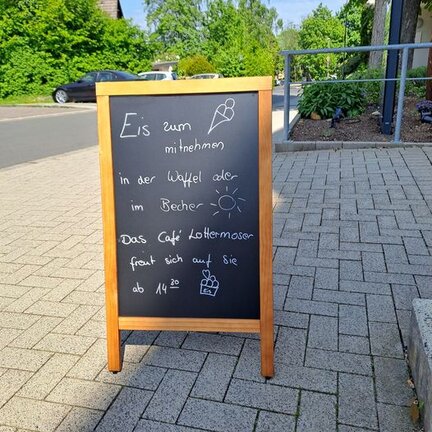 Eis zum
mitnehmen
in der Waffel oder
im Becher
Das Café Lottermoser
freut sich auf Sie
ab 14 30
Eis